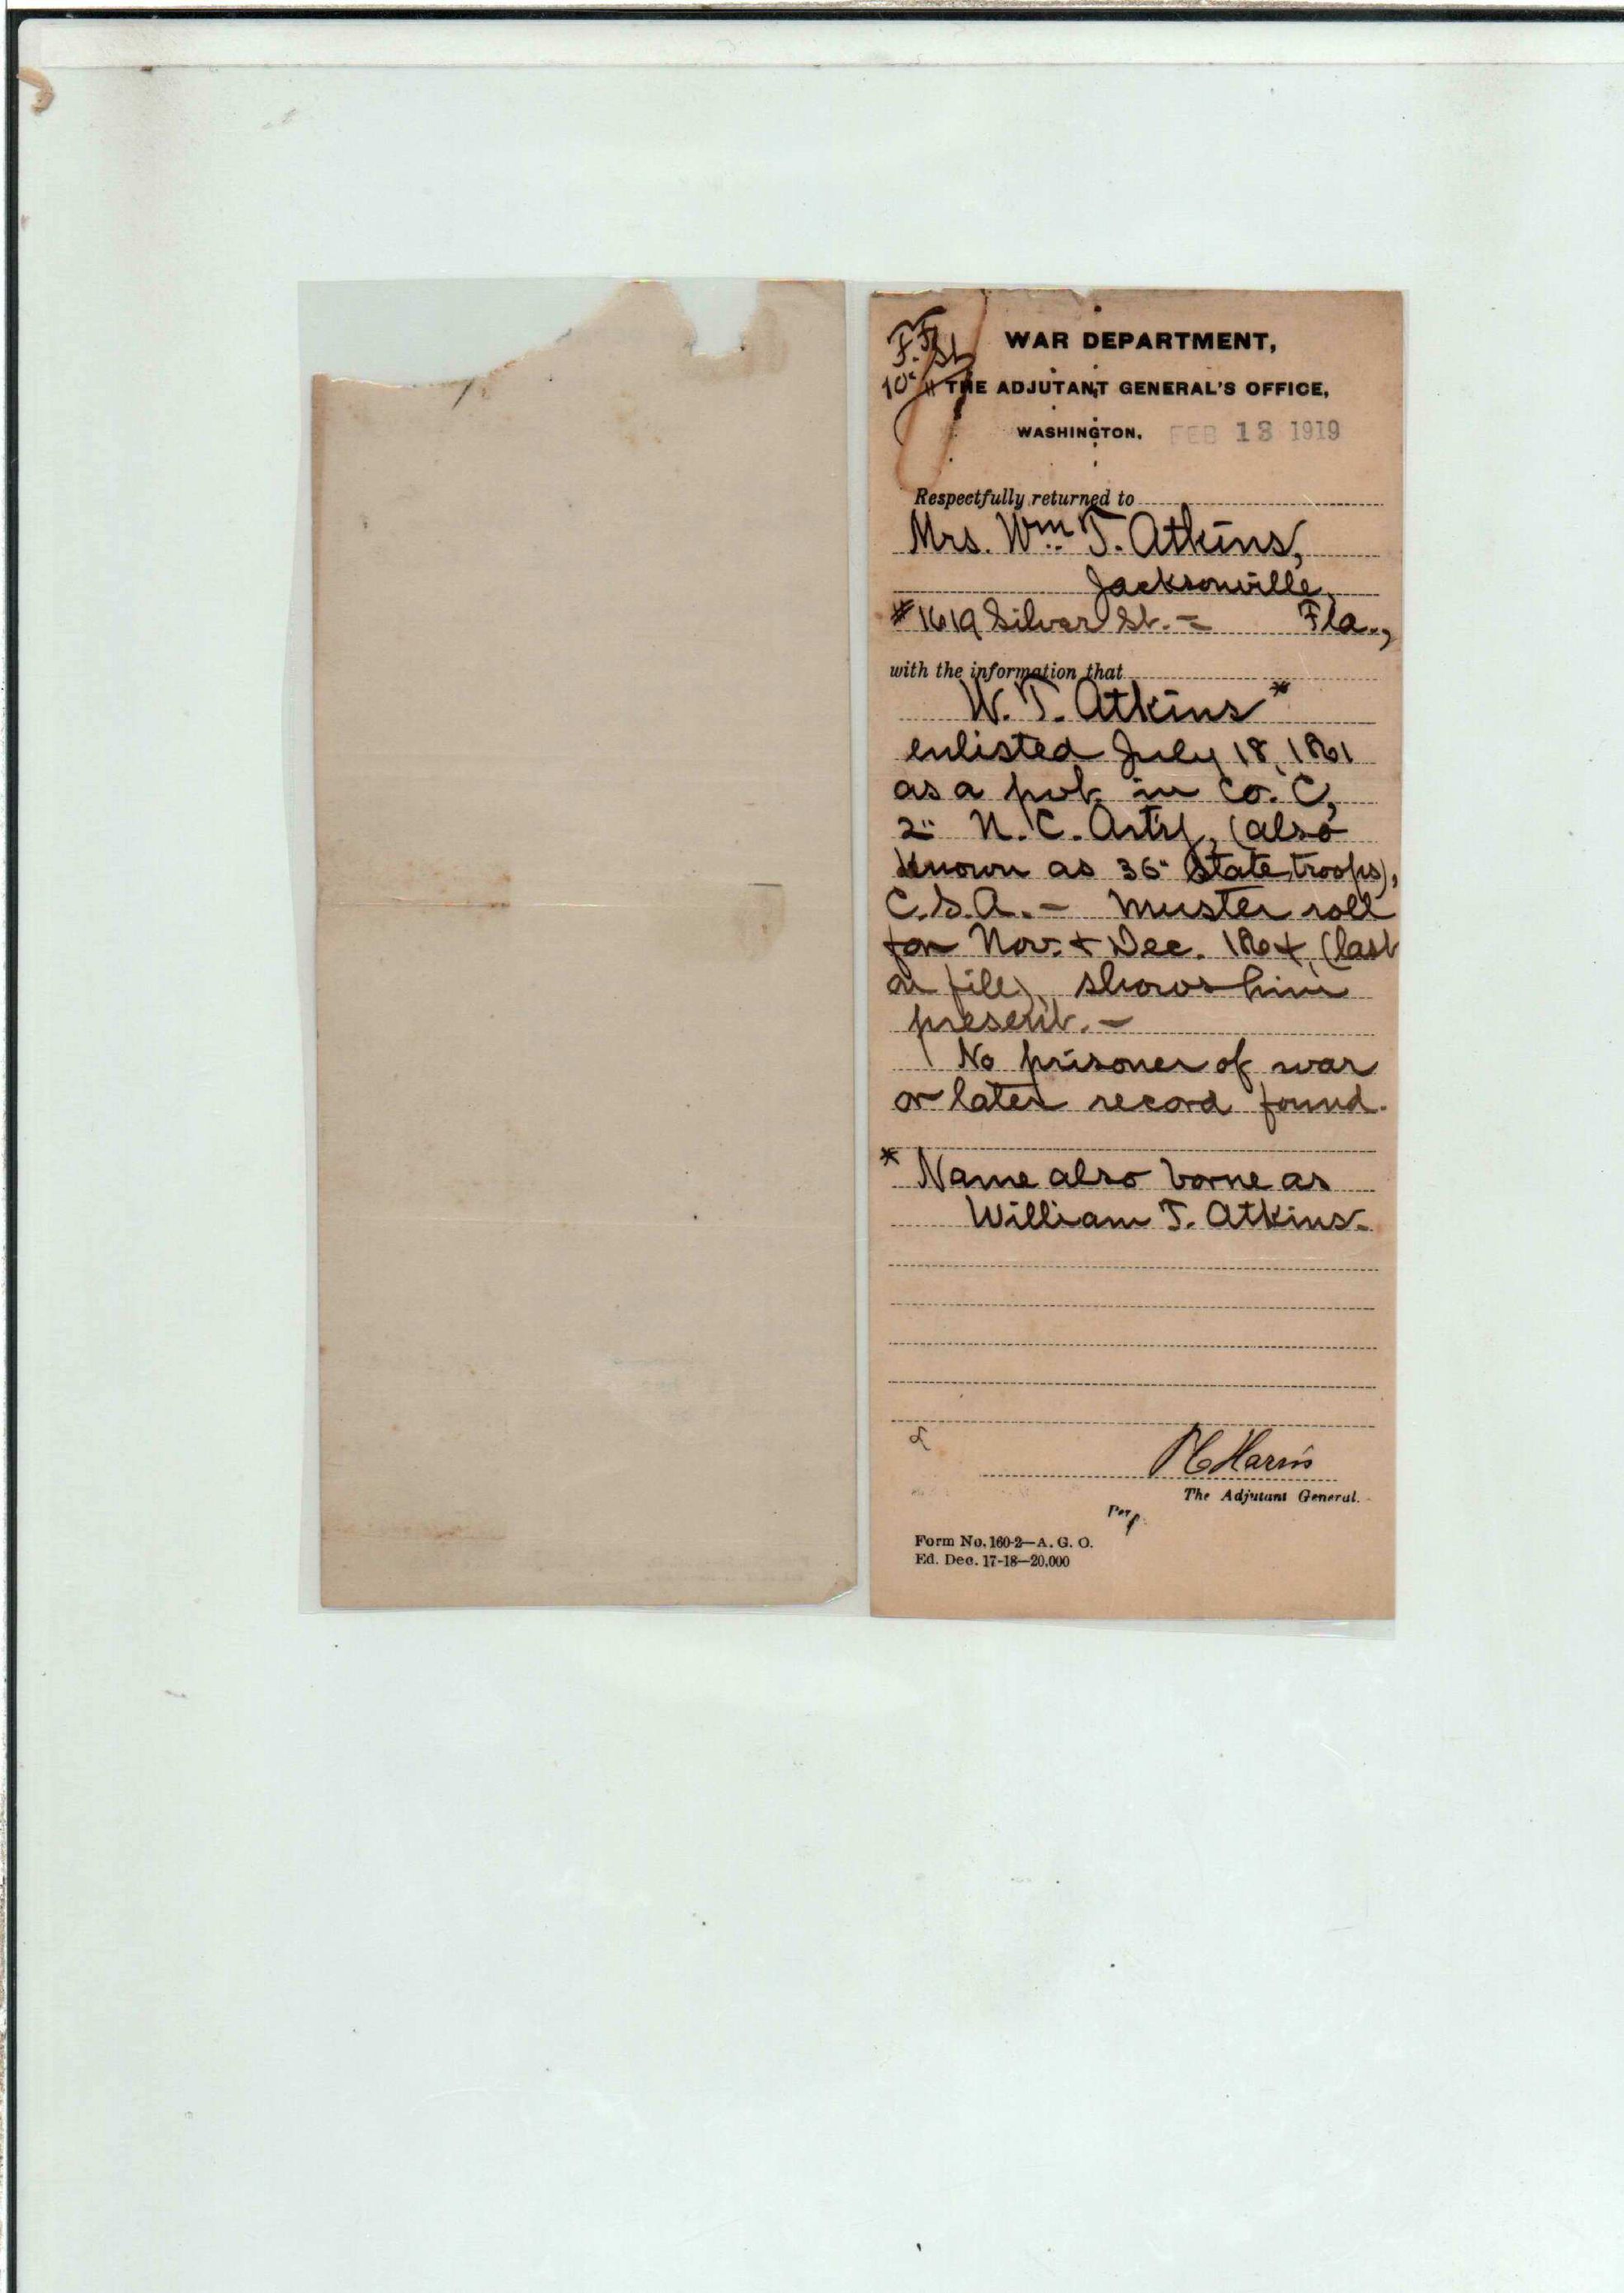 WAR DEPARTMENT,
THE ADJUTANT GENERAL'S OFFICE,
WASHINGTON, FEB 13 1919
Respectfully returned to
Mrs. Wm. T. Atkins,
Jacksonville,
#1619 Silver St. = Fla.,
with the information that
W. T. Atkins*
enlisted July 18, 1861
as a pvt. in Co. C,
2" N. C. Arty, (also
known as 36" State troops),
C.S.A. - Muster roll
for Nov. & Dec. 1864, (last
on file), shows him
present. -
No prisoner of war
or later record found.
* Name also borne as
William T. Atkins.
P C Harris
The Adjutant General.
Per
Form No. 160-2—A. G. O.
Ed. Dec. 17-18—20,000